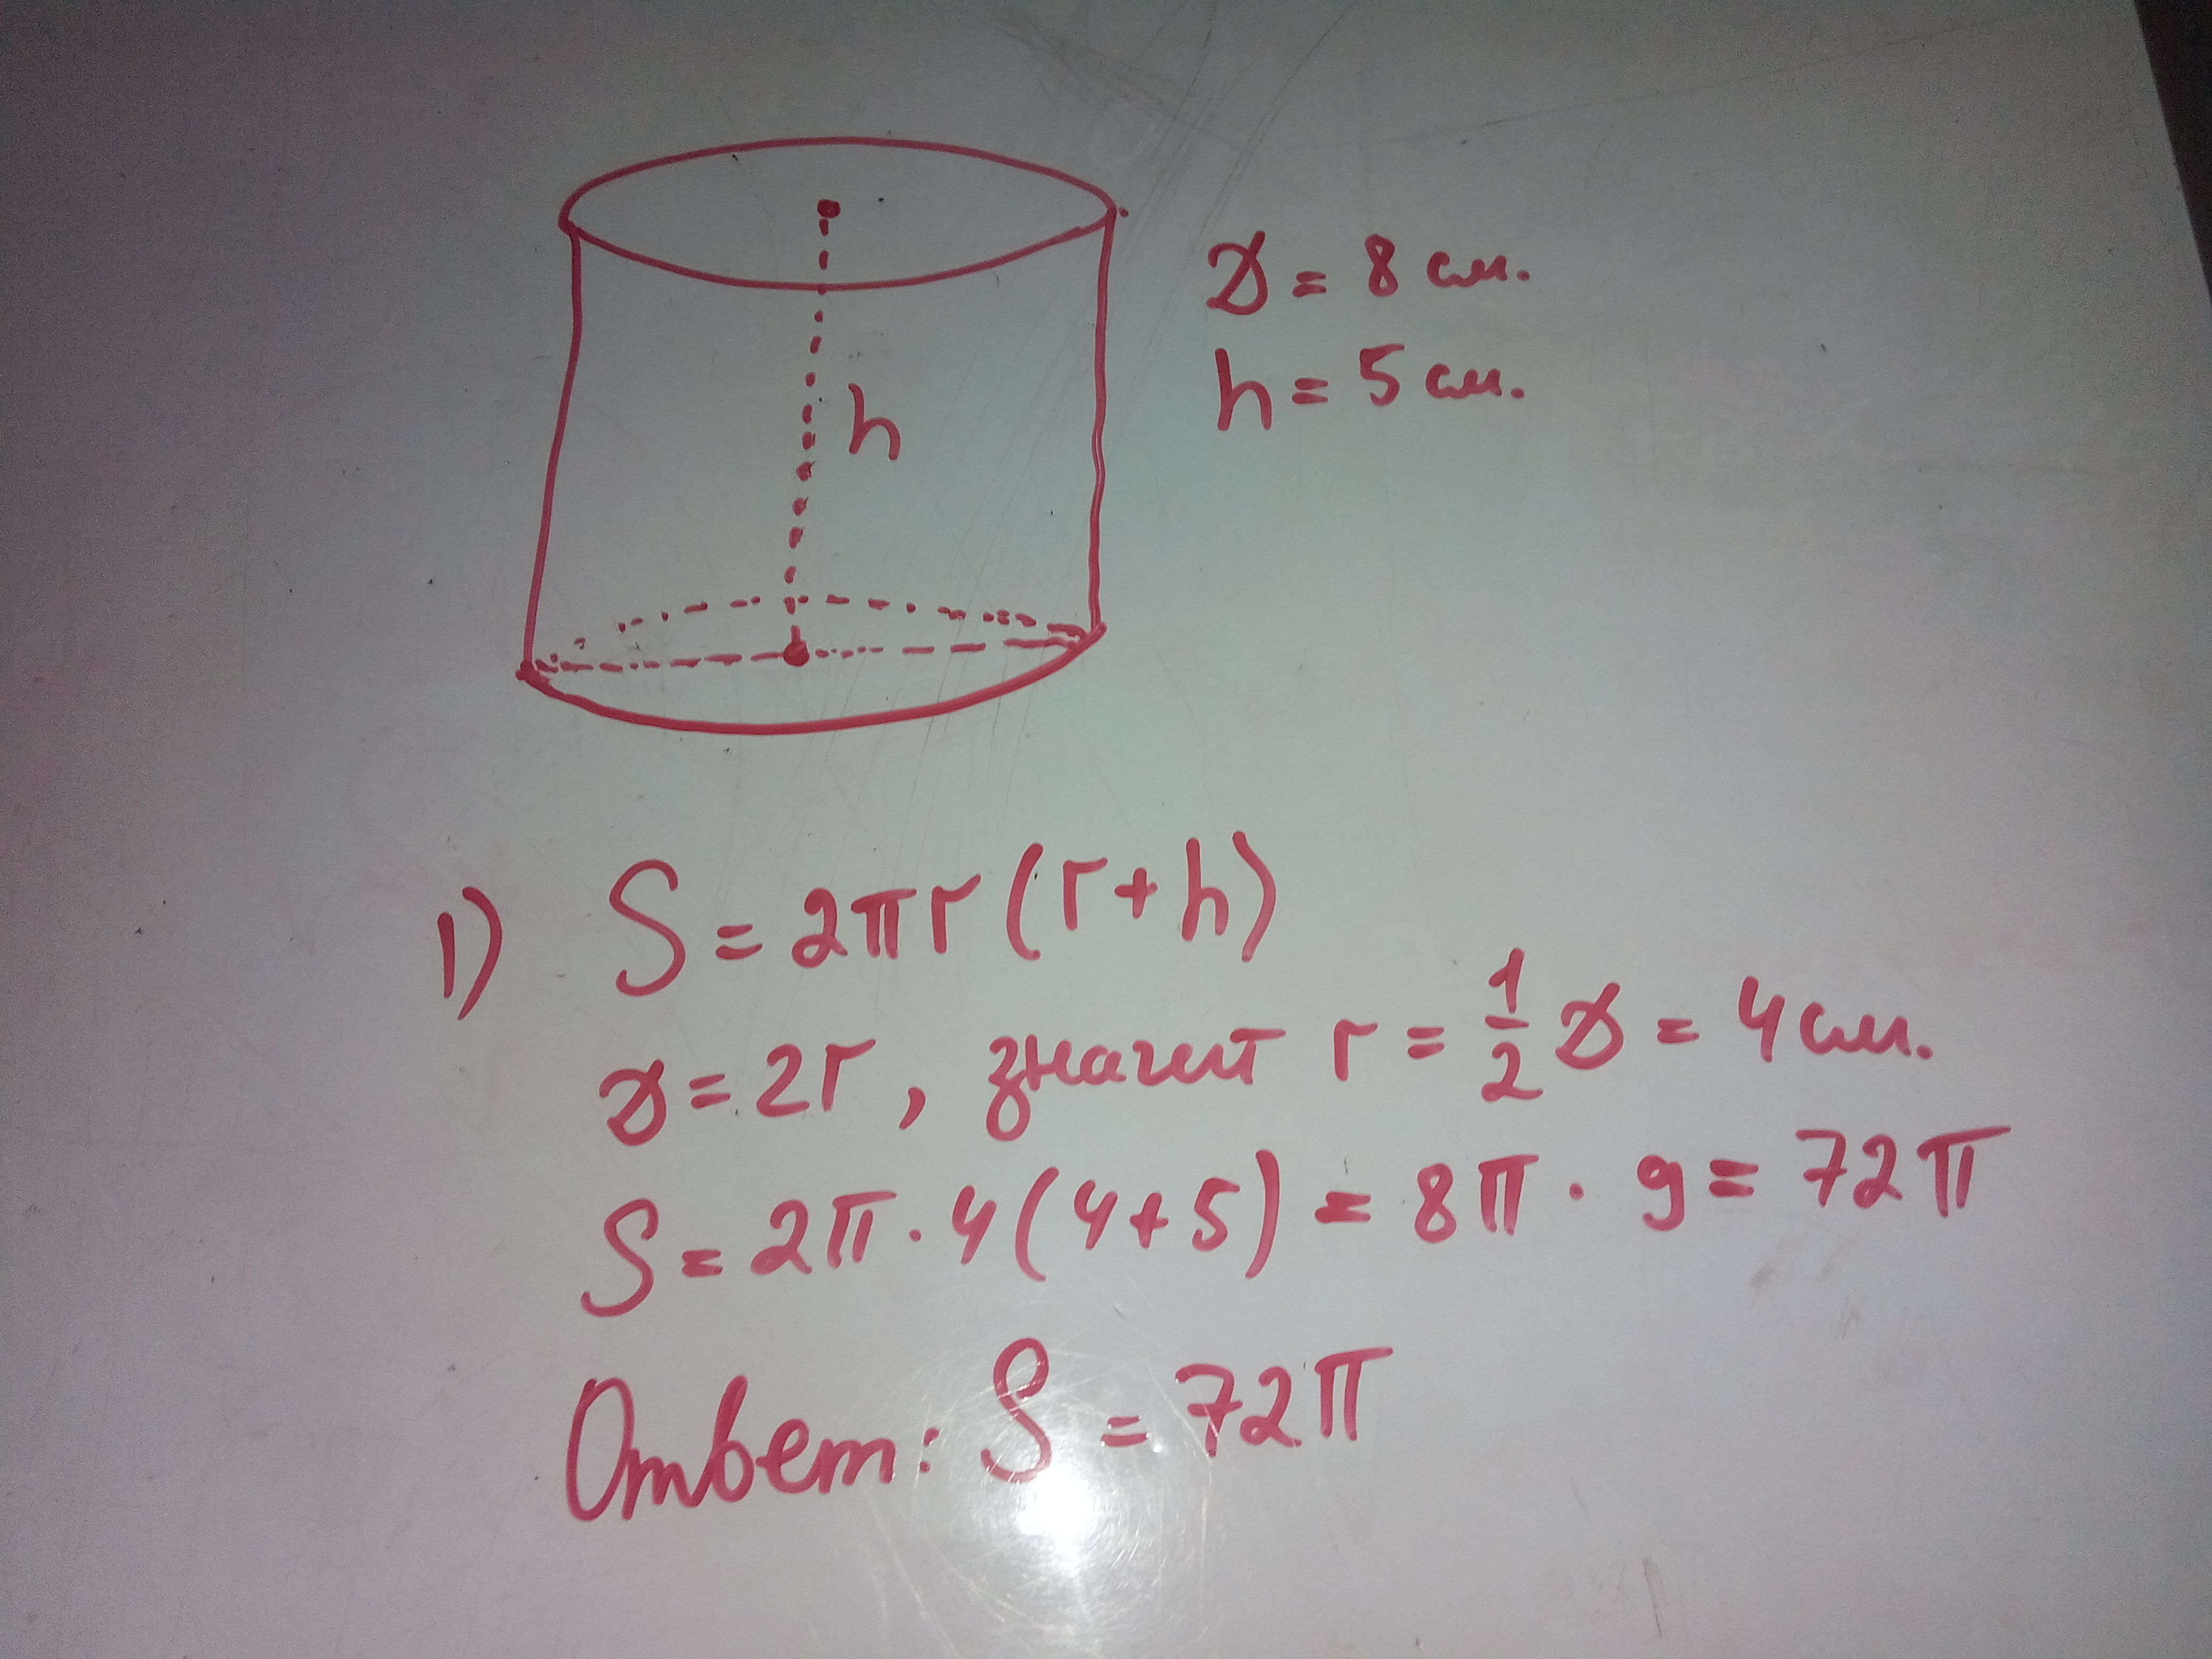 D = 8 см.
h = 5 см.
h
1) S = 2πr(r+h)
D = 2r, значит r = 1/2 D = 4 см.
S = 2π · 4(4+5) = 8π · 9 = 72π
Ответ: S = 72π